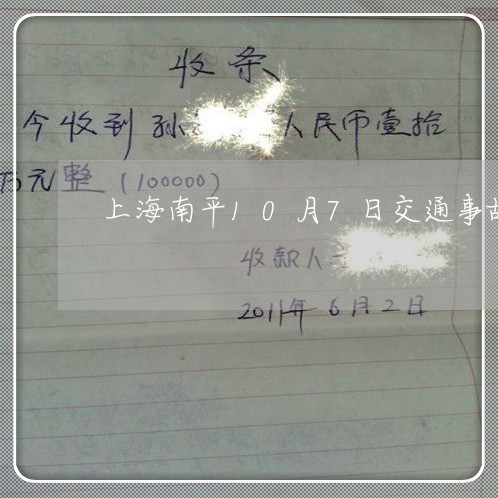 收条
今收到孙 人民币壹拾
万元整(100000)
上海南平10月7日交通事故
收款人
2011年6月2日